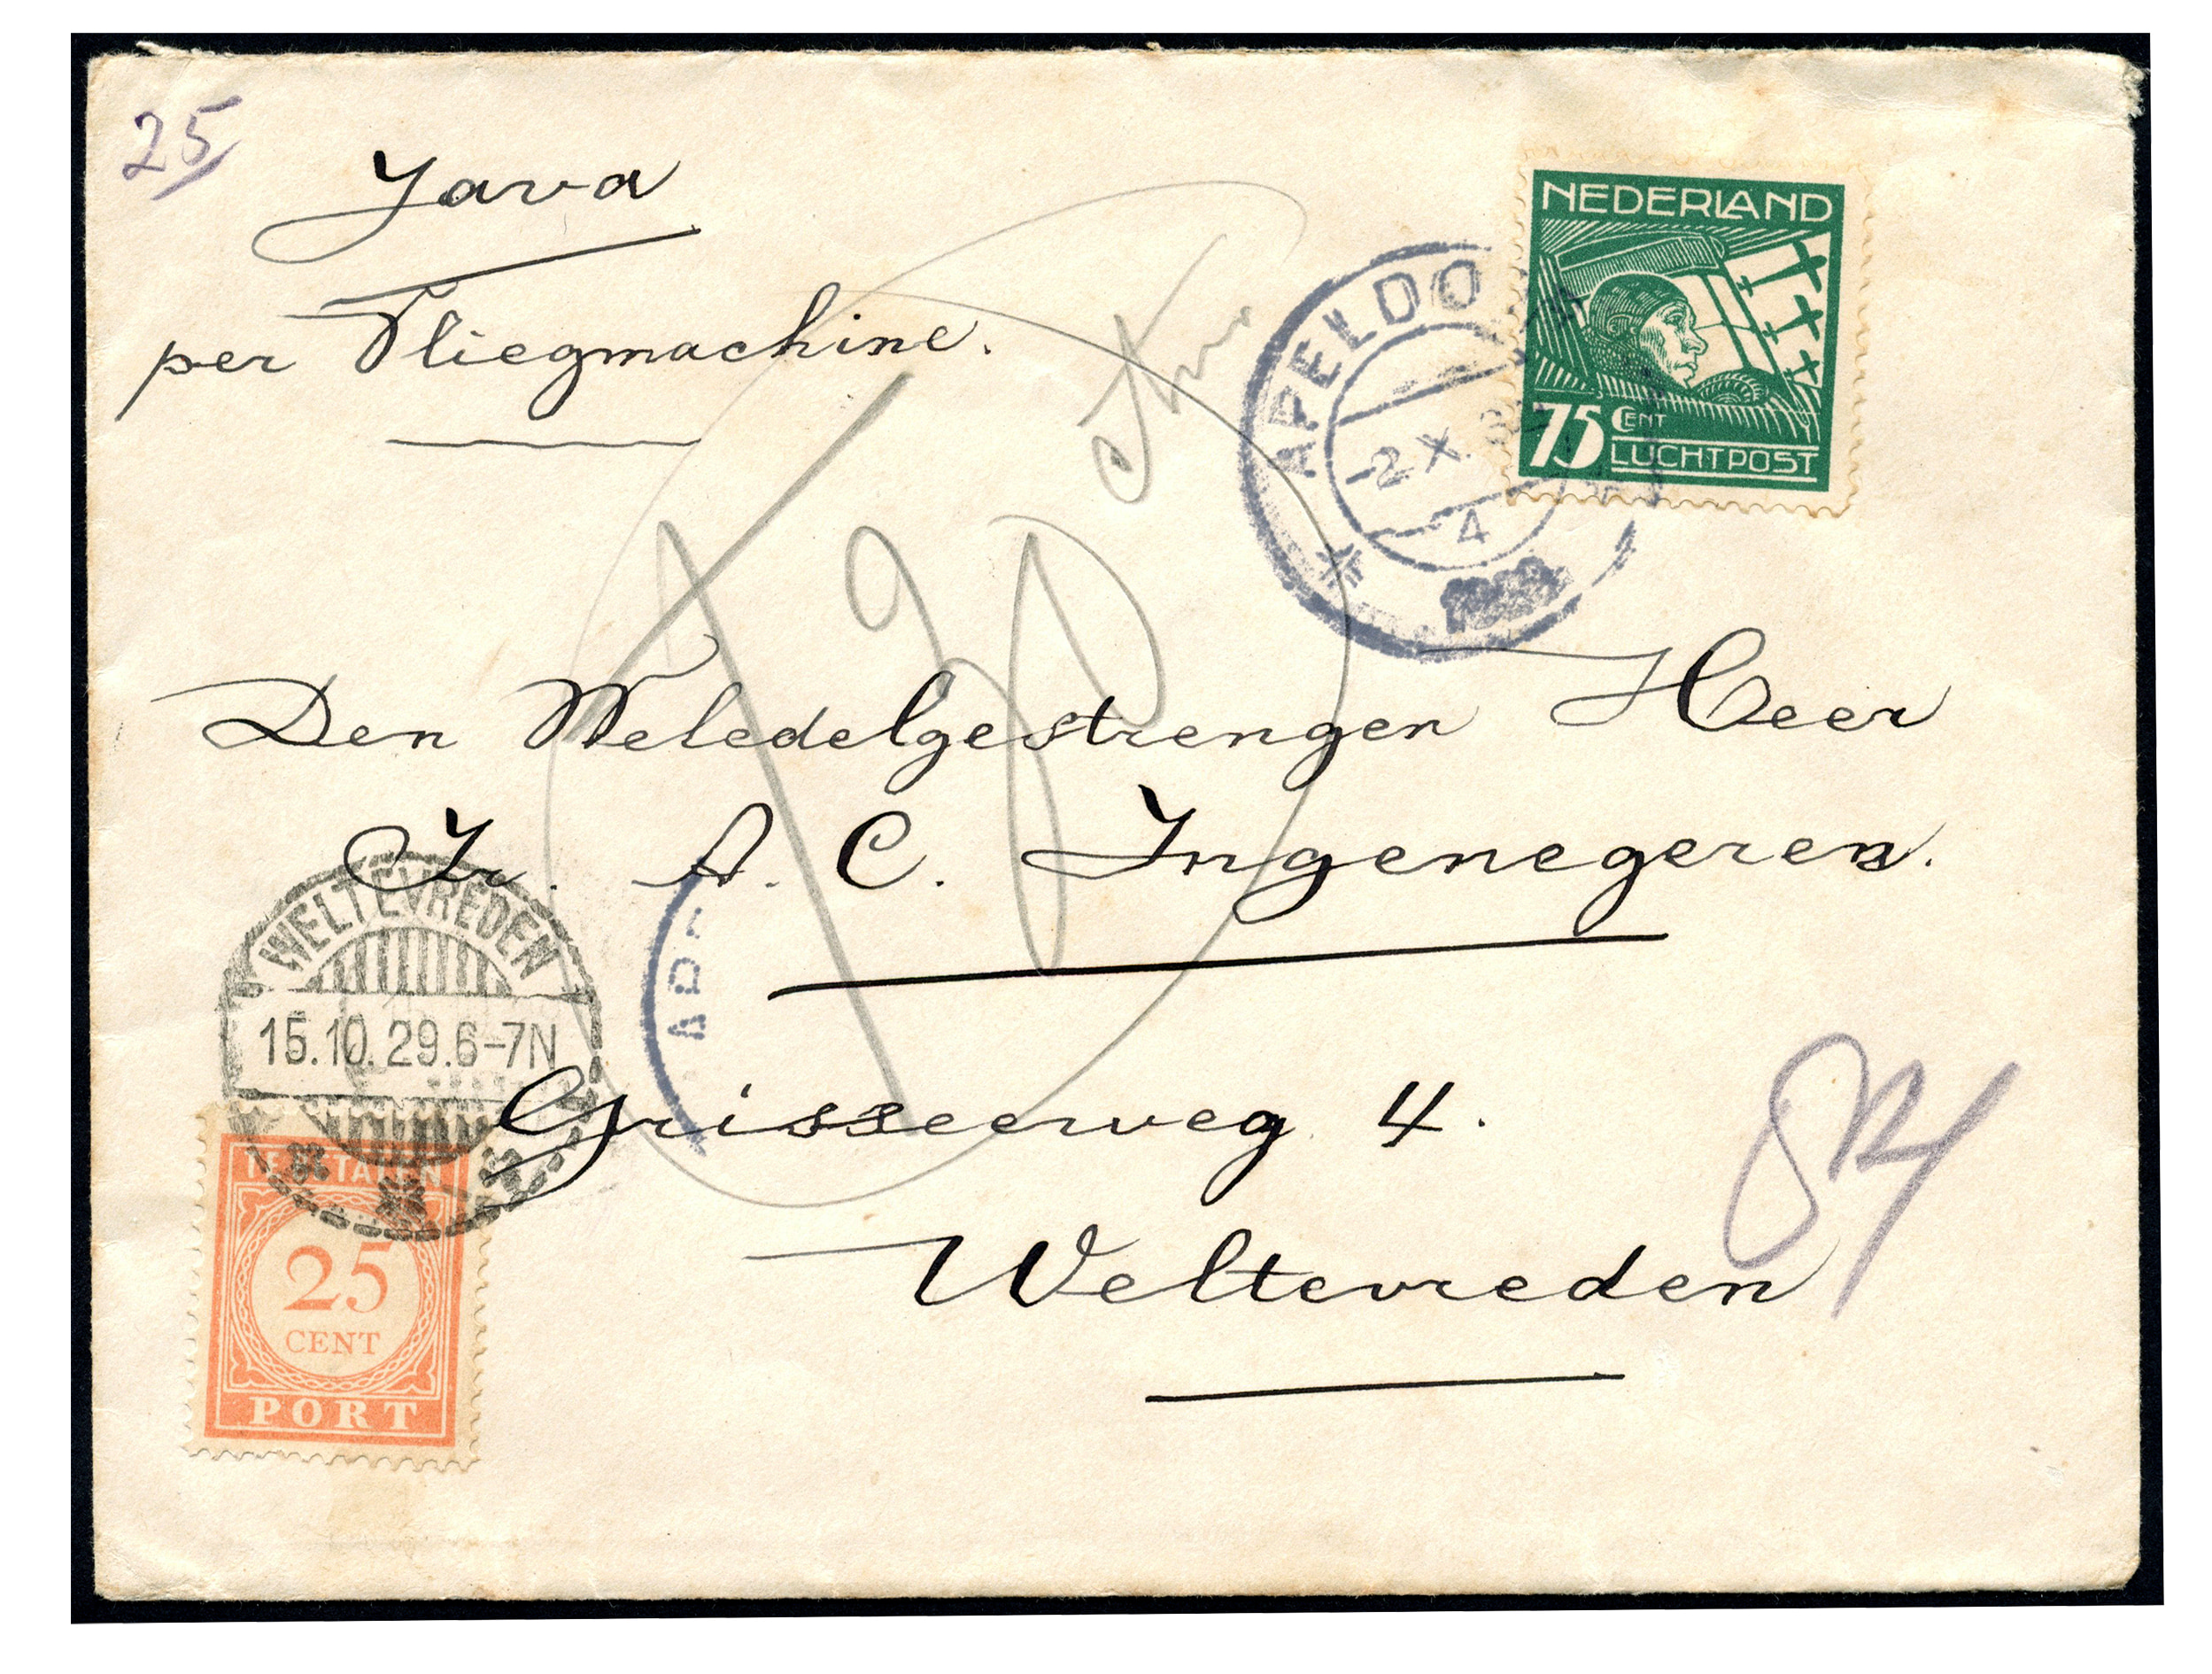 25
Java
per Vliegmachine.
NEDERLAND
75 CENT
LUCHTPOST
APELDO
-2.X.
4
T
Den Weledelgestrengen Heer
Ir. A. C. Ingenegeren.
Grisseeweg 4.
Weltevreden
WELTEVREDEN
15.10.29.6-7N
TE BETALEN
25
CENT
PORT